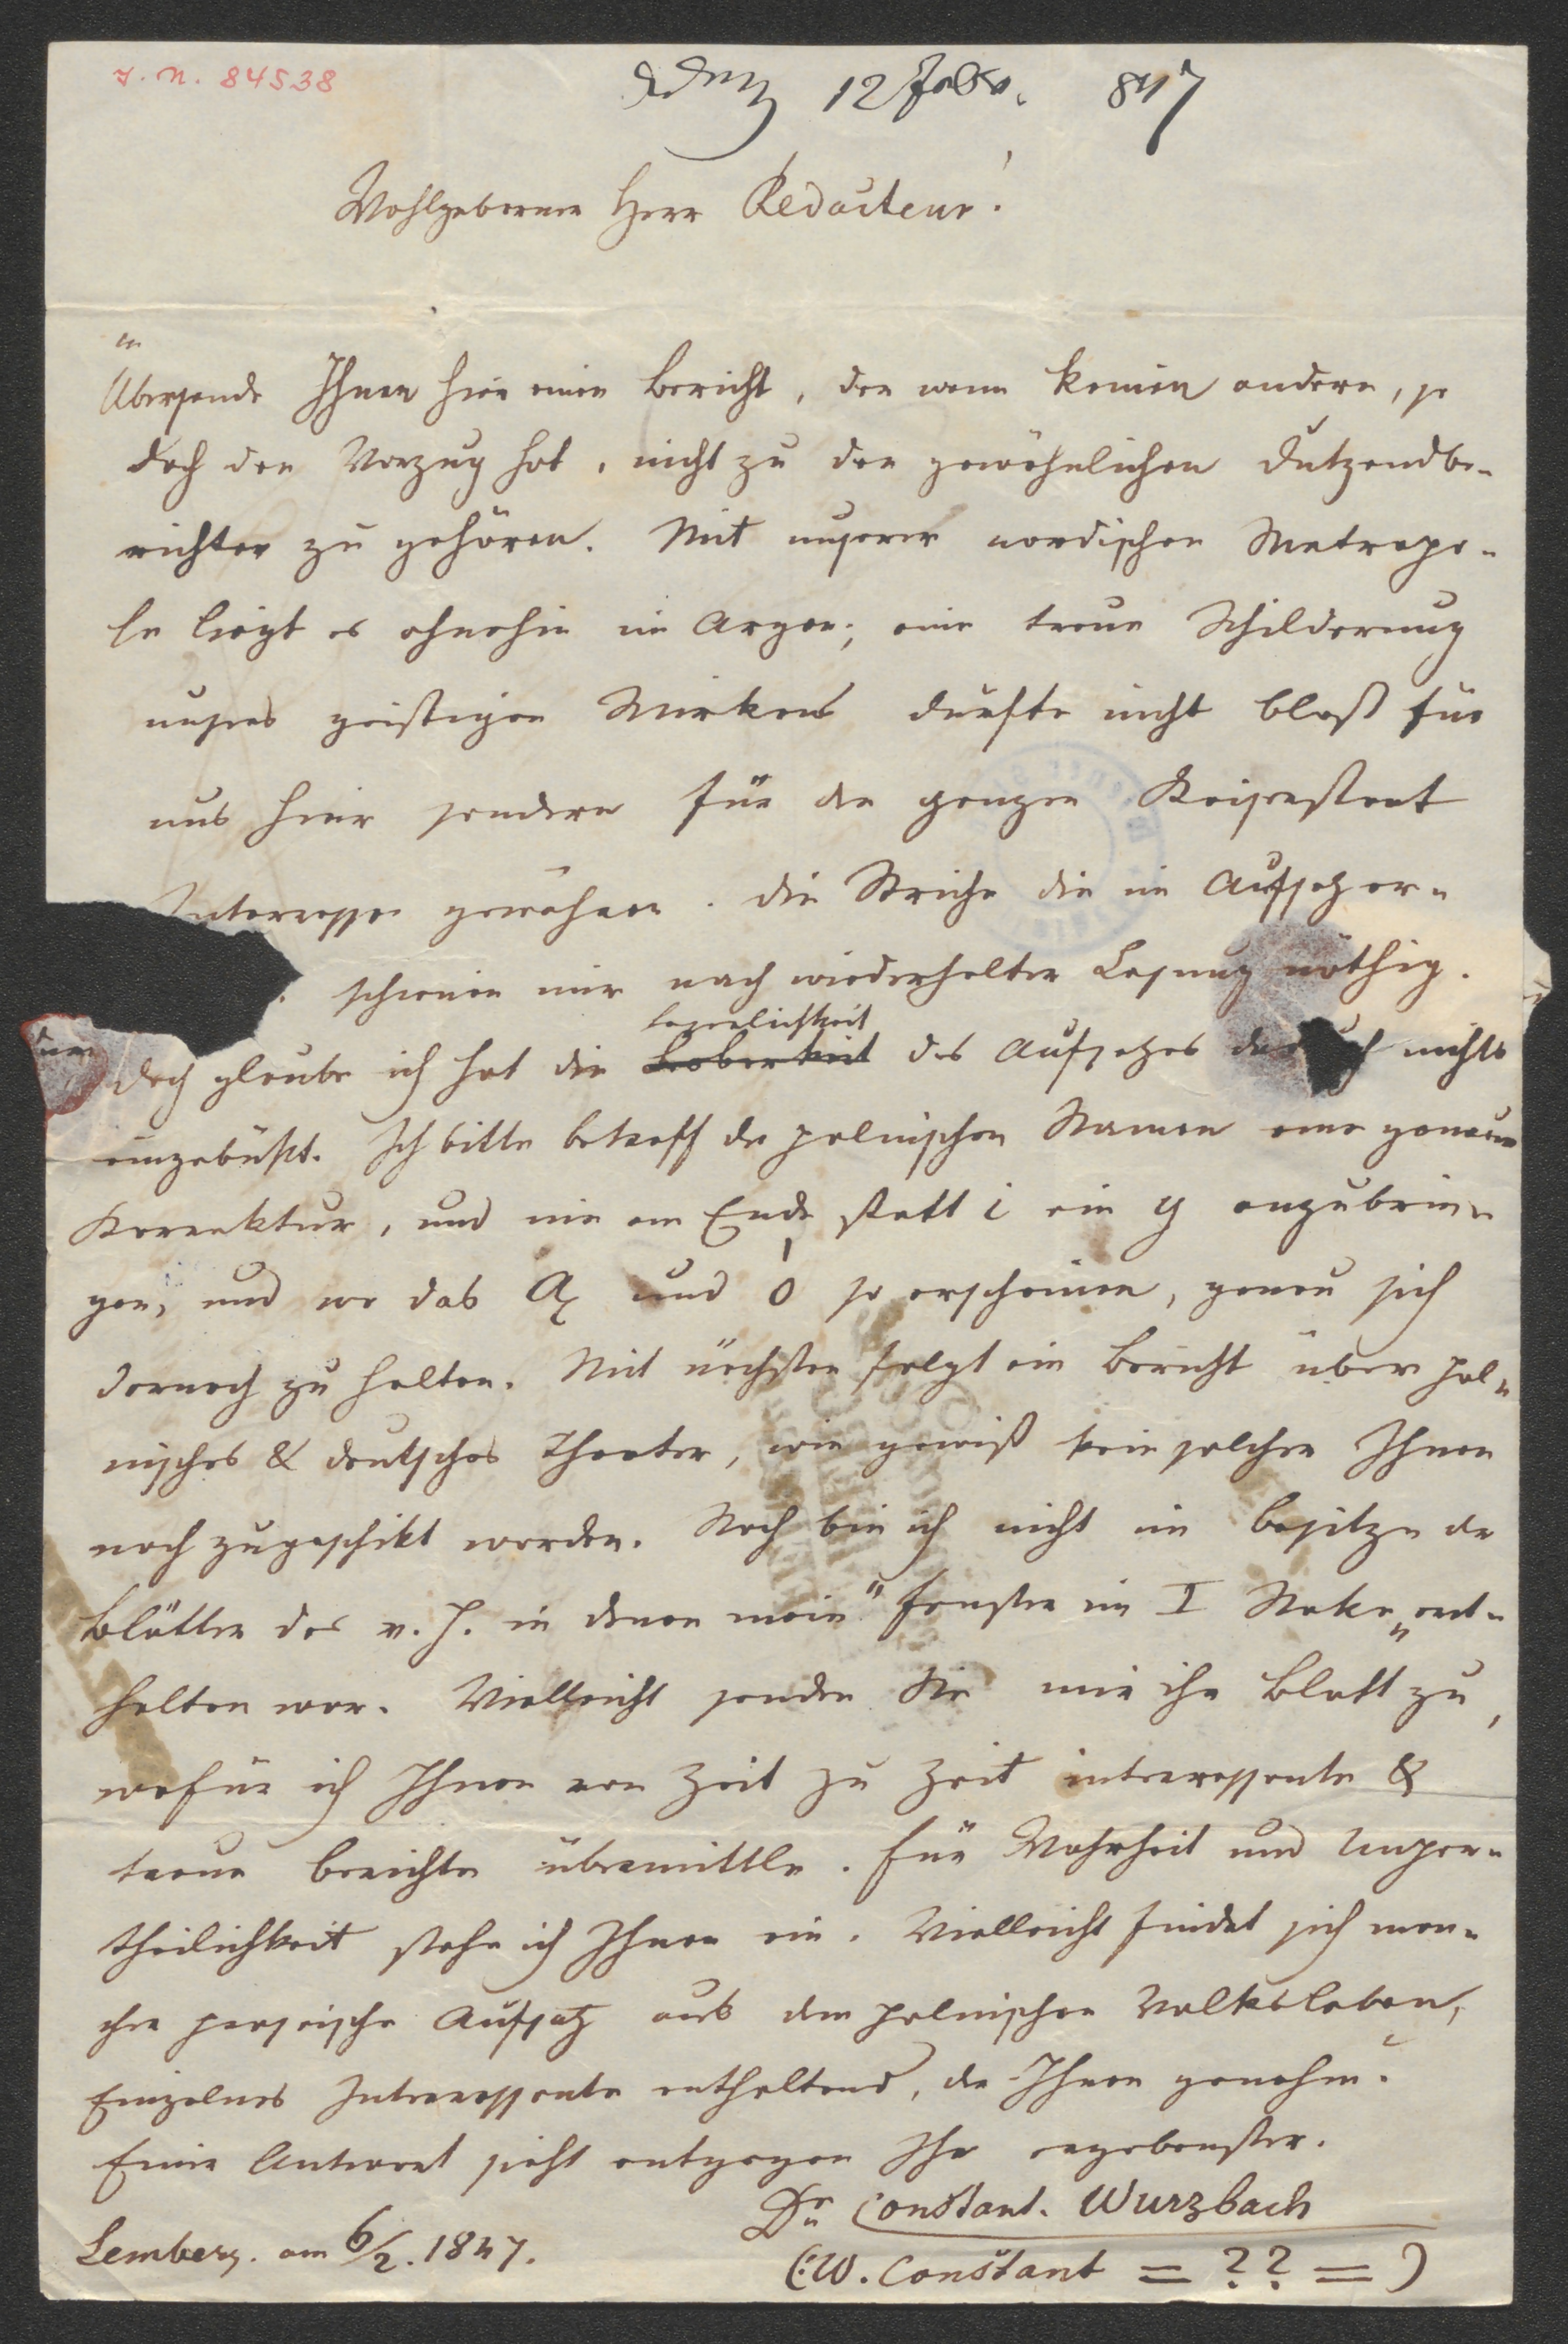 I. N. 84538
12 Febr. 847
Wohlgeborner Herr Redacteur!
Übersende Ihnen hier einen Bericht, der wenn keinen andern, so
doch den Vorzug hat, nicht zu den gewöhnlichen Dutzendbe-
richten zu gehören. Mit unserer nordischen Metropo-
le liegt es ohnehin im Argen; eine treue Schilderung
unsres geistigen Wirkens dürfte nicht bloß für
uns hier sondern für den ganzen Kaiserstaat
Interesse gewähren. Die Striche die im Aufsatz er-
schienen mir nach wiederholter Lesung nöthig.
Leserlichkeit
doch glaube ich hat die des Aufsatzes dadurch nichts
eingebüßt. Ich bitte betreff der polnischen Namen eine genaue
Korrektur, und nie am Ende statt i ein y anzubrin-
gen, und wo das Ą und Ó so erscheinen, genau sich
darnach zu halten. Mit nächsten folgt ein Bericht über pol-
nisches & deutsches Theater, wie gewiß kein solcher Ihnen
noch zugeschikt worden. Noch bin ich nicht im Besitze der
Blätter des v. J. in denen mein "Fenster im I Stoke" ent-
halten war. Vielleicht senden Sie mir ihr Blatt zu,
wofür ich Ihnen von Zeit zu Zeit interressante &
treue Berichte übermittle. Für Wahrheit und Unpar-
theilichkeit stehe ich Ihnen ein. Vielleicht findet sich man-
cher prosaische Aufsatz aus dem polnischen Volksleben,
Einzelnes Interressante enthaltend, der Ihnen genehm.
Einer Antwort sieht entgegen Ihr ergebenster.
Dr Constant. Wurzbach
Lemberg. am 6/2. 1847.
(:W. Constant = ?? = )